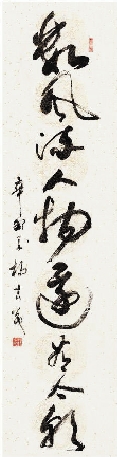 數風流人物還看今朝
辛卯